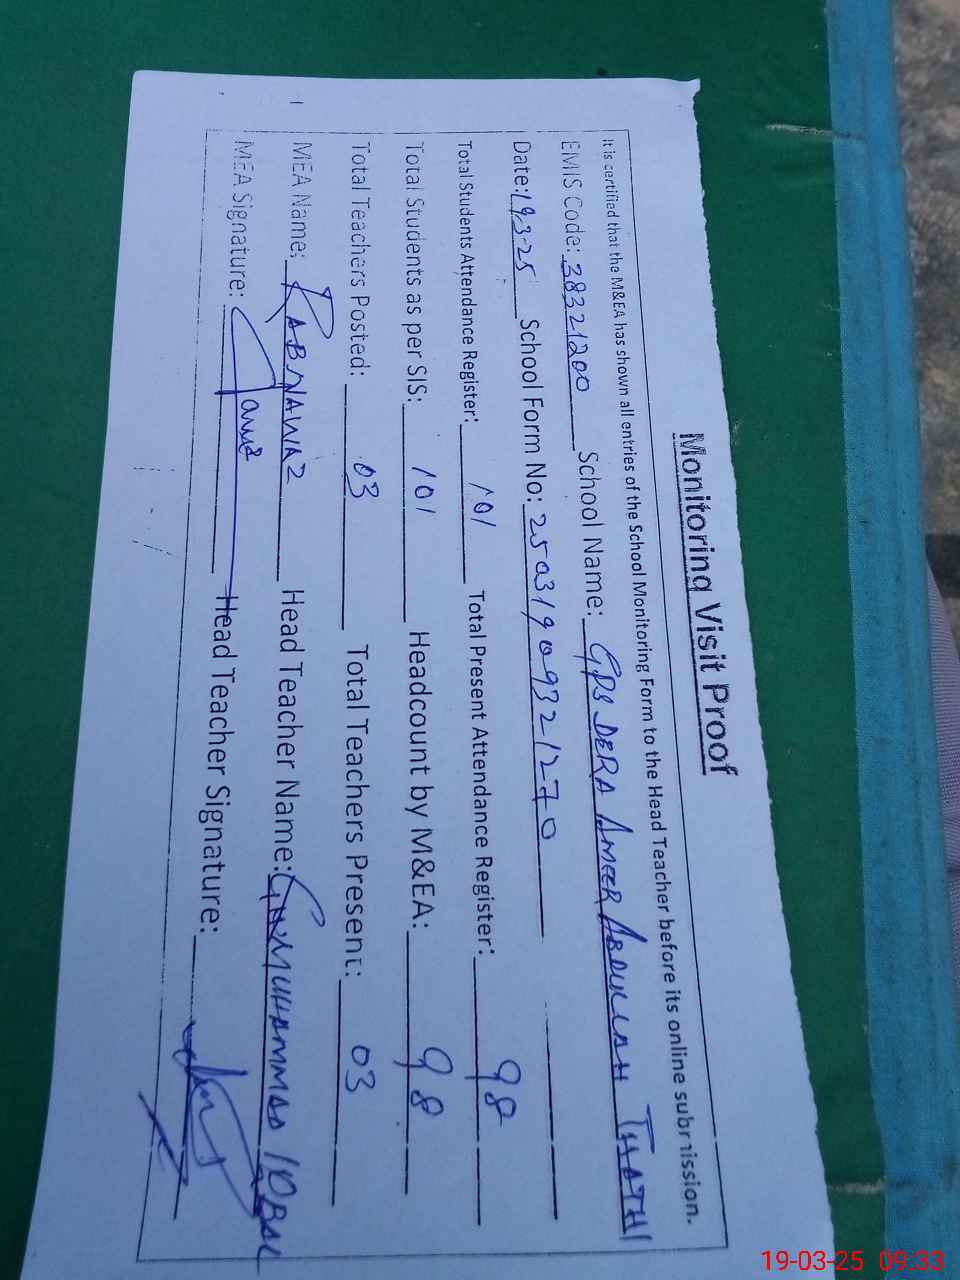 Monitoring Visit Proof
It is certified that the M&EA has shown all entries of the School Monitoring Form to the Head Teacher before its online submission.
EMIS Code: 38321200 School Name: GPS DERA AMEER ABDULLAH THATHI
Date: 19-3-25 School Form No: 25031909321270
Total Students Attendance Register: 101 Total Present Attendance Register: 98
Total Students as per SIS: 101 Headcount by M&EA: 98
Total Teachers Posted: 03 Total Teachers Present: 03
MEA Name: RABNAWAZ Head Teacher Name: MUHAMMAD IQBAL
MEA Signature: Head Teacher Signature:
19-03-25 09:33